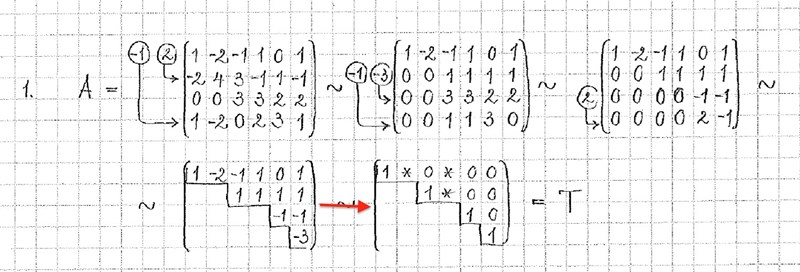 -1 2 1 -2 -1 1 0 1 -1 -3 1 -2 -1 1 0 1 1 -2 -1 1 0 1
-2 4 3 -1 1 -1 0 0 1 1 1 1 0 0 1 1 1 1
1. A = 0 0 3 3 2 2 ~ 0 0 3 3 2 2 ~ 2 0 0 0 0 -1 -1 ~
1 -2 0 2 3 1 0 0 1 1 3 0 0 0 0 0 2 -1
1 -2 -1 1 0 1 1 * 0 * 0 0
~ 1 1 1 1 ~ 1 * 0 0 = T
-1 -1 1 0
-3 1